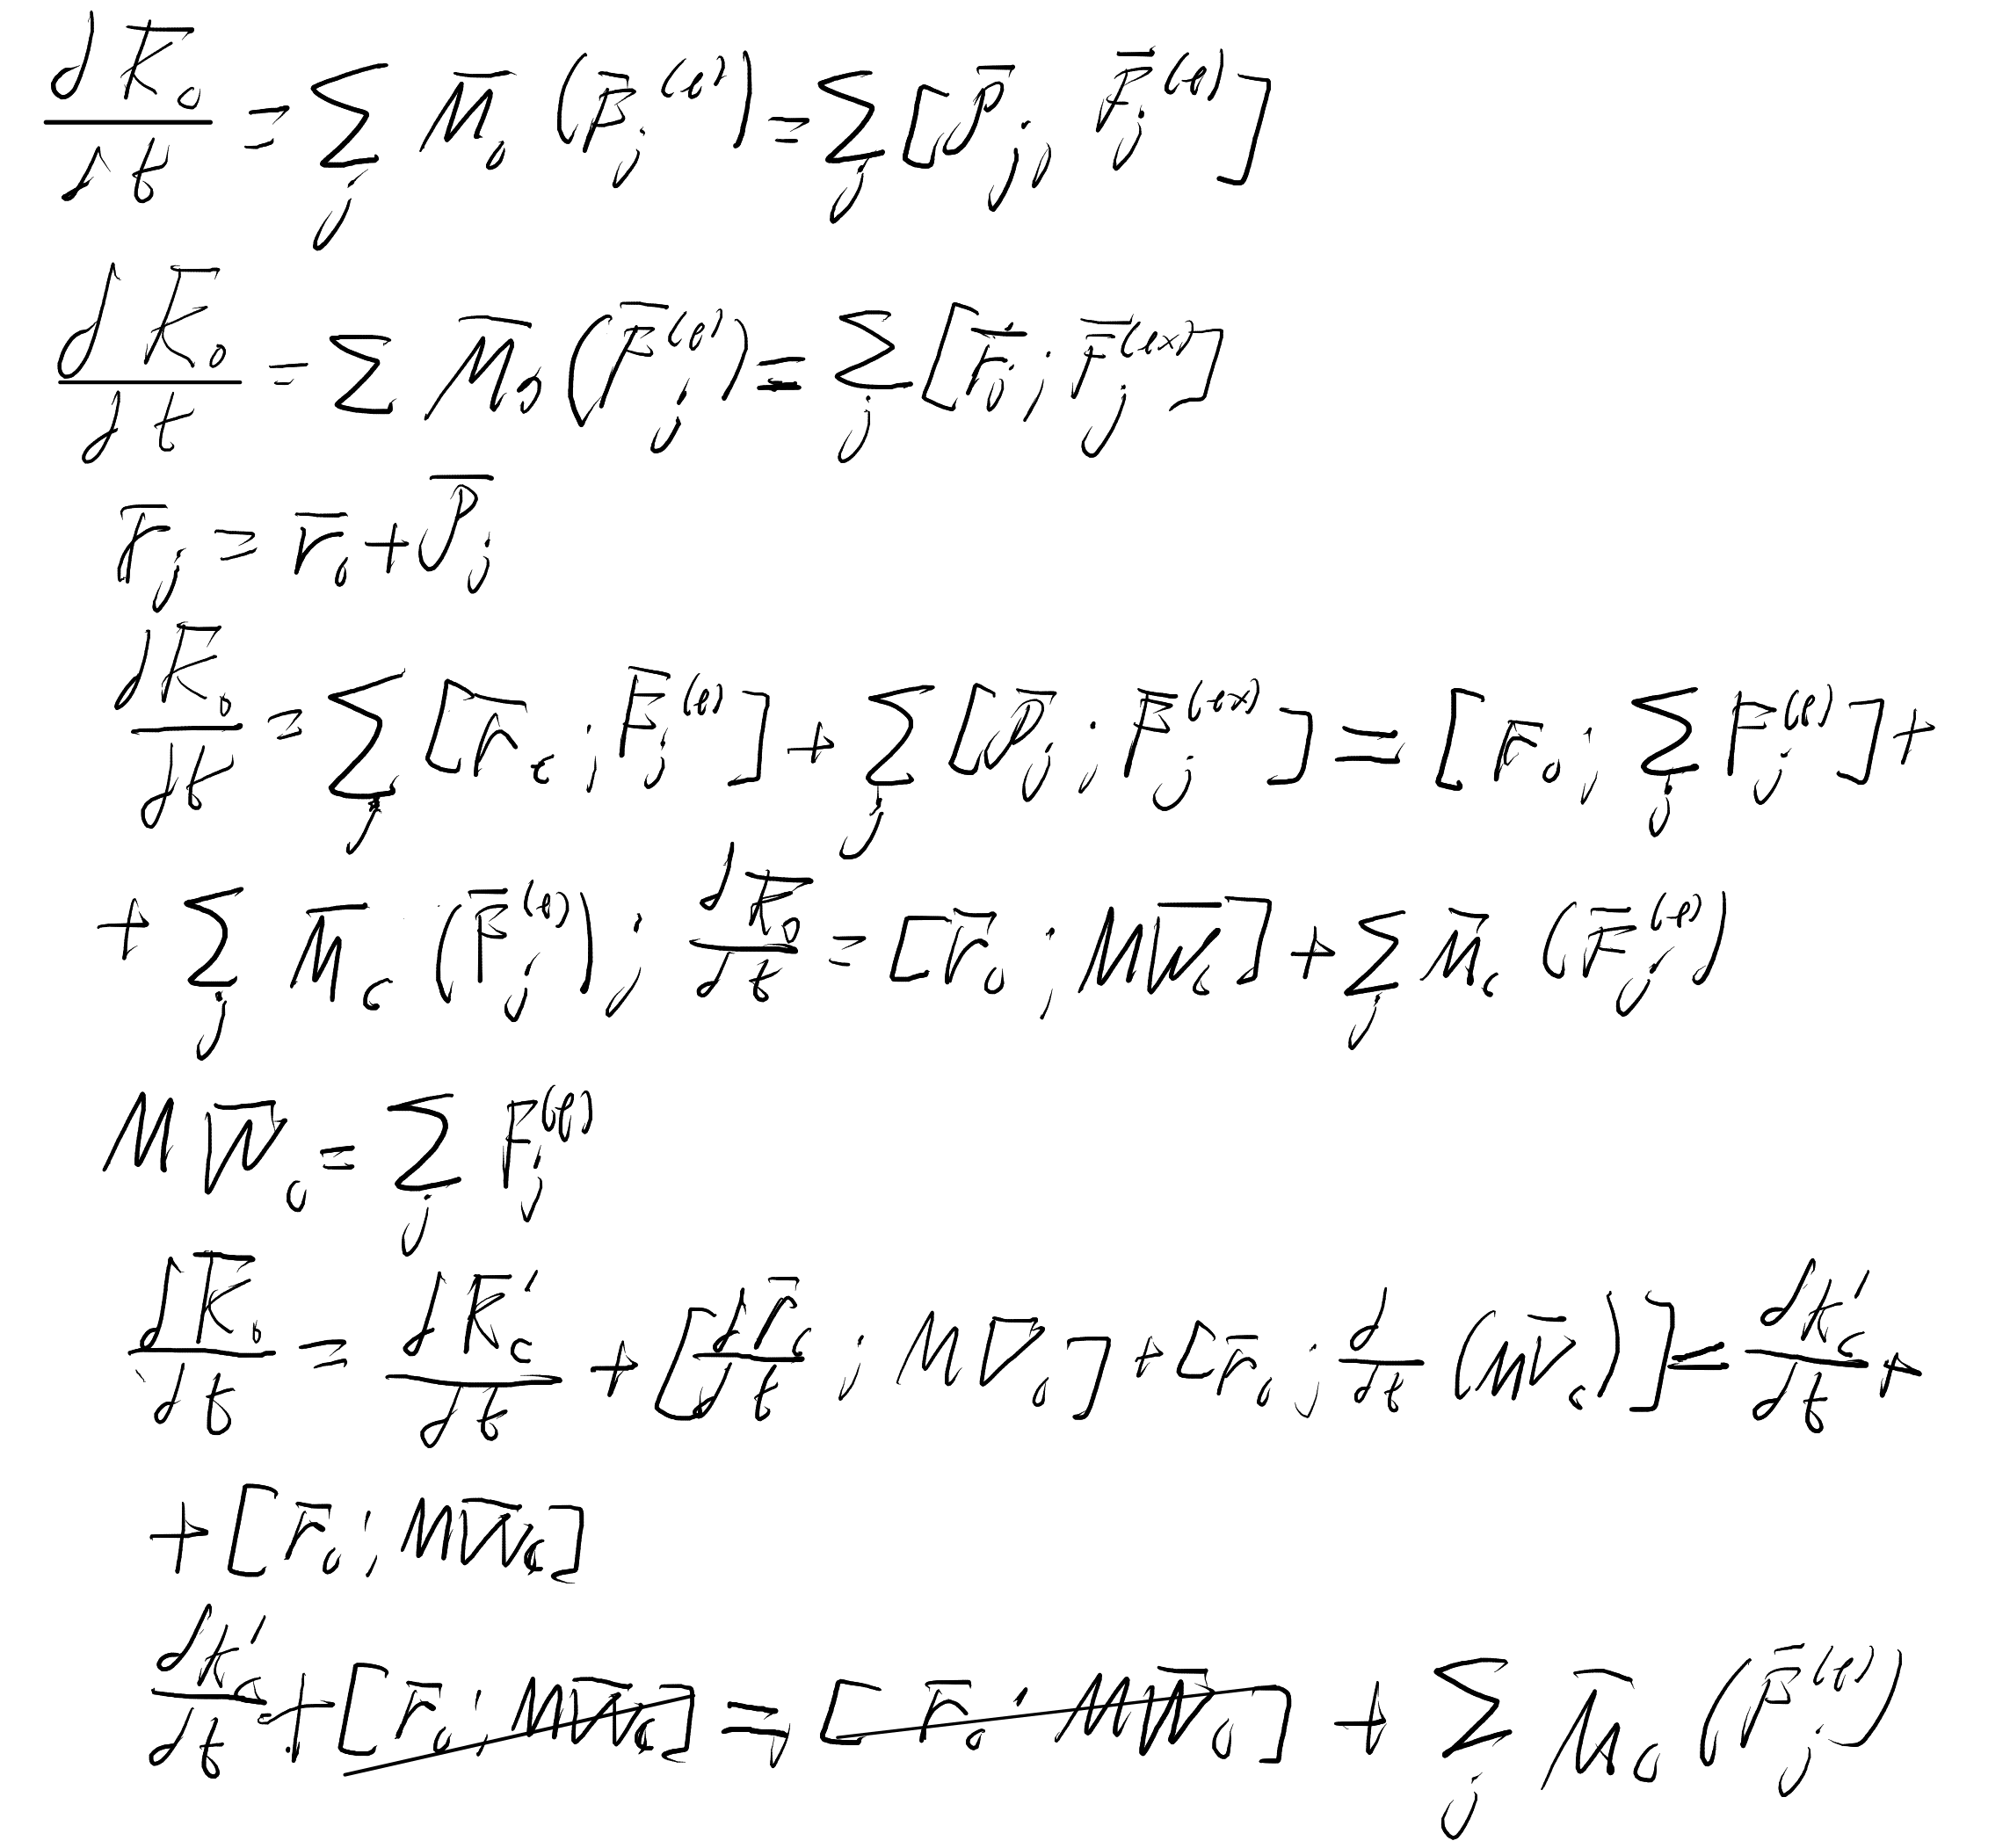 dK̄_c/dt = ∑_j M̄_c (F̄_j^(e)) = ∑_j [ρ̄_j, F̄_j^(e)]
dK̄_o/dt = ∑ M̄_o (F̄_j^(e)) = ∑_j [r̄_j; F̄_j^(ex)]
r̄_j = r̄_c + ρ̄_j
dK̄_o/dt = ∑_j [r̄_c; F̄_j^(e)] + ∑_j [ρ̄_j; F̄_j^(ex)] = [r̄_c; ∑_j F̄_j^(e)] +
+ ∑_j M̄_c (F̄_j^(e)); dK̄_o/dt = [r̄_c; MW̄_c] + ∑_j M̄_c (F̄_j^(e))
MW̄_c = ∑_j F̄_j^(e)
dK̄_o/dt = dK̄'_c/dt + [dr̄_c/dt; MV̄_c] + [r̄_c; d/dt (MV̄_c)] = dK̄'_c/dt +
+ [r̄_c; MW̄_c]
dK̄'_c/dt + [r̄_c; MW̄_c] = [r̄_c; MW̄_c] + ∑_j M̄_c (F̄_j^(e))